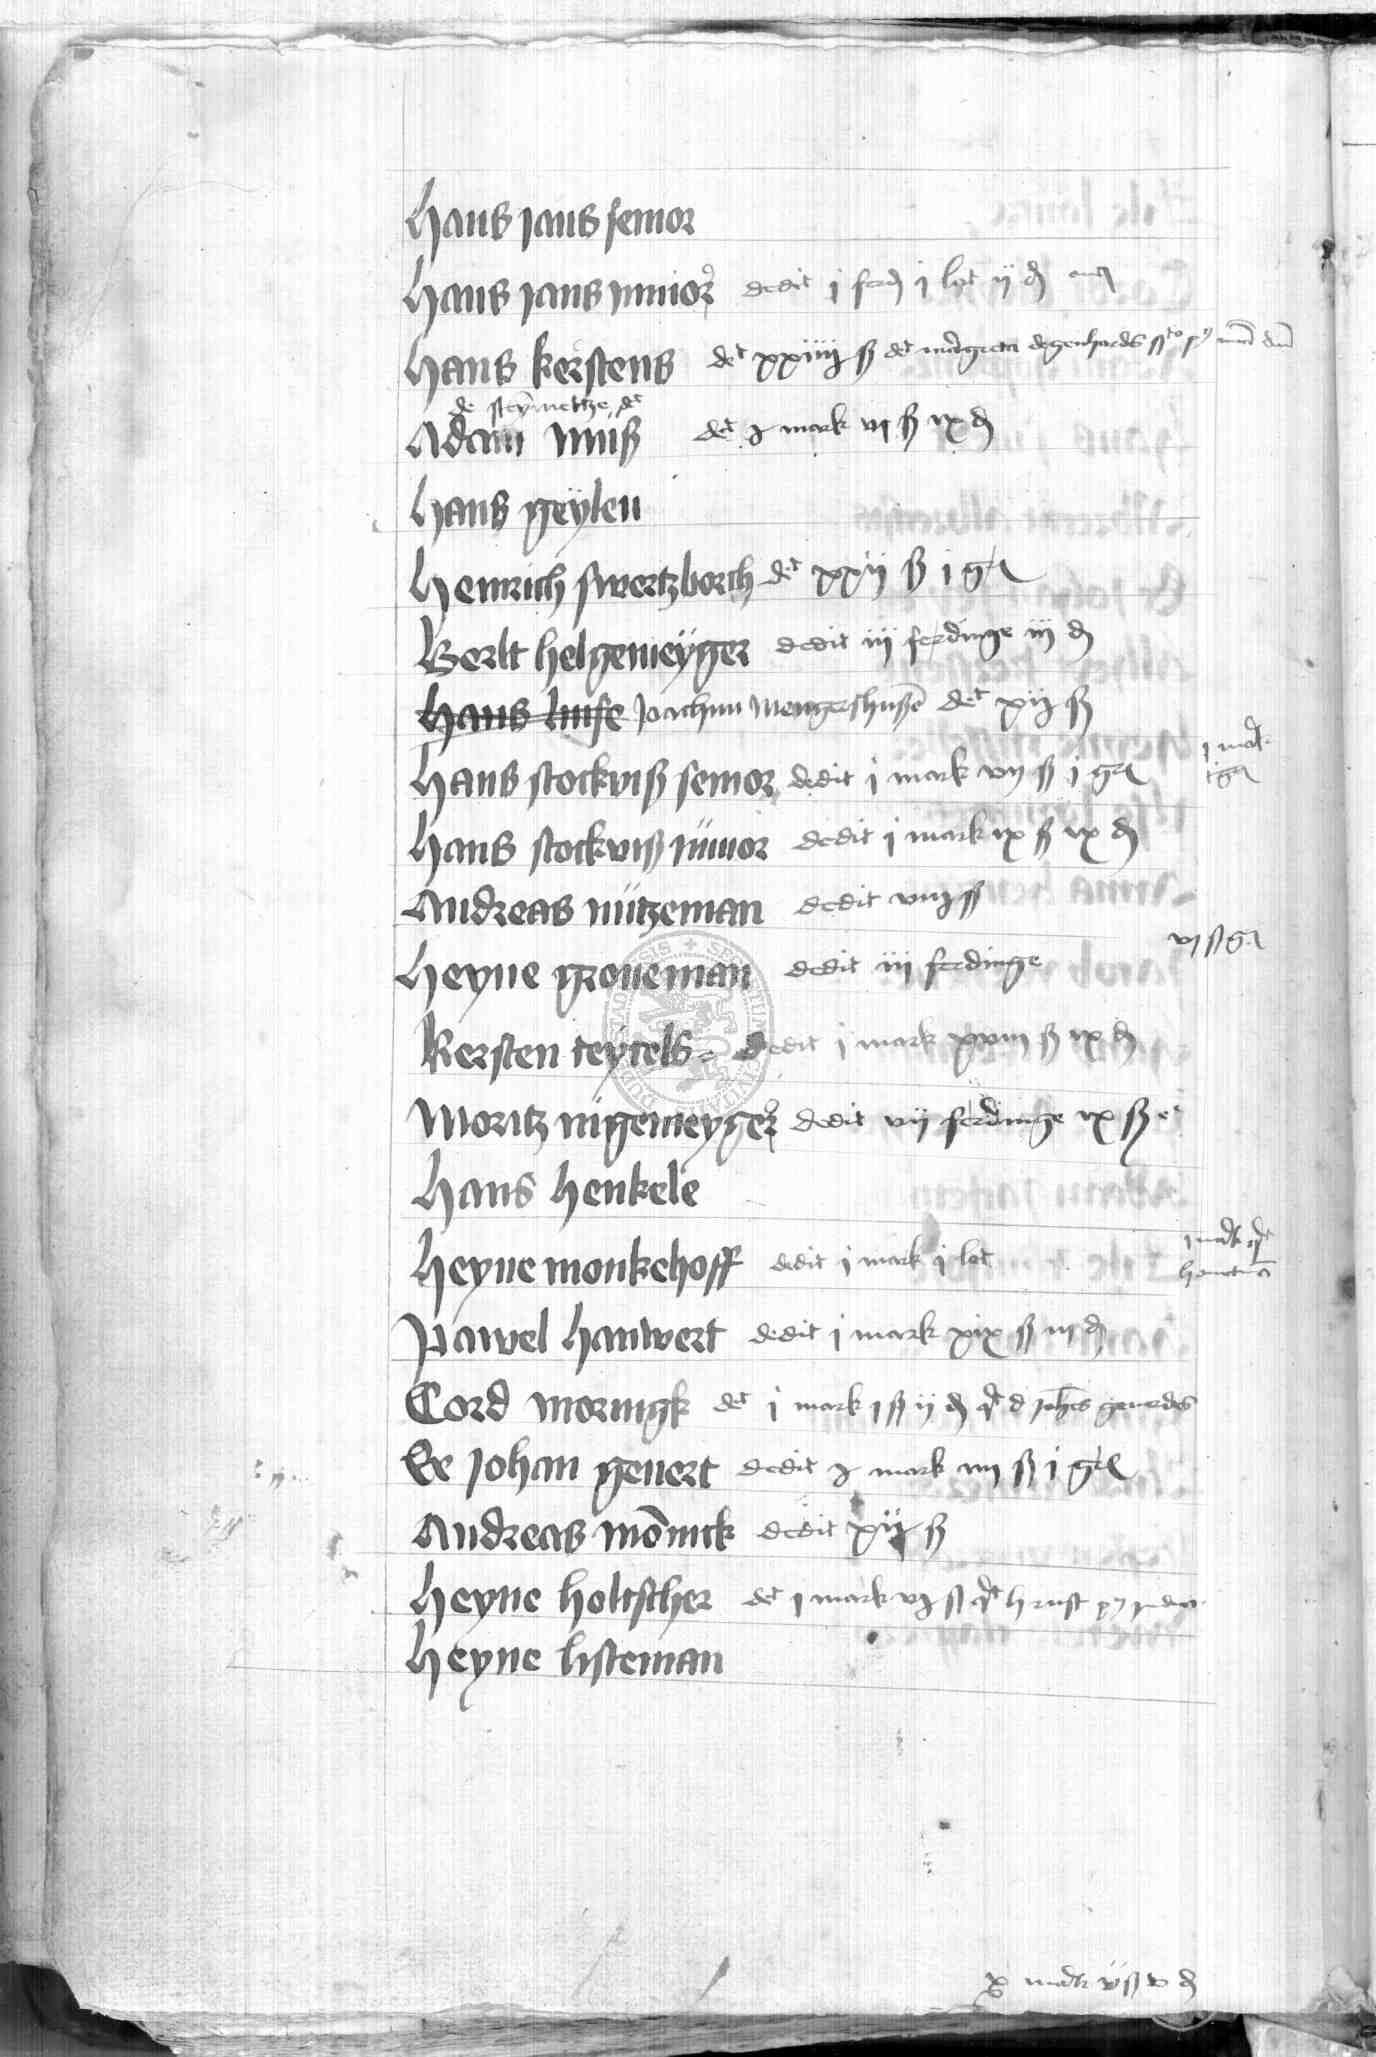 Hans Jans senior
Hans Jans iunior dedit j ferd j lot ij d
Hans kerstens det xxiiij ß det margreta degenhardes
de steymettze det
Adam muß det j mark vj ß ix d
Hans geÿlen
Henrich swertzborch det xxij ß j gr
Berlt helgemeÿger dedit iij ferdinge iij d
Hans Joachim Mengershusen det xij ß
Hans stockviß senior dedit j mark vij ß j gr
Hans stockviß iunior dedit j mark ix ß ix d
Andreas nützeman dedit viij ß
Heyne groneman dedit iij ferdinge
Kersten teÿtels dedit j mark xviij ß ix d
Moritz nigemeyger dedit vij ferdinge ix ß
Hans henkele
Heyne monkehoff dedit j mark j lot
Pawel hanwert dedit j mark xix ß iij d
Cord moringk det j mark j ß ij d
Er Johan gevert dedit j mark iiij ß j gr
Andreas mönnick dedit xij ß
Heyne holtscher det j mark vj ß
Heyne listeman
x mark v d